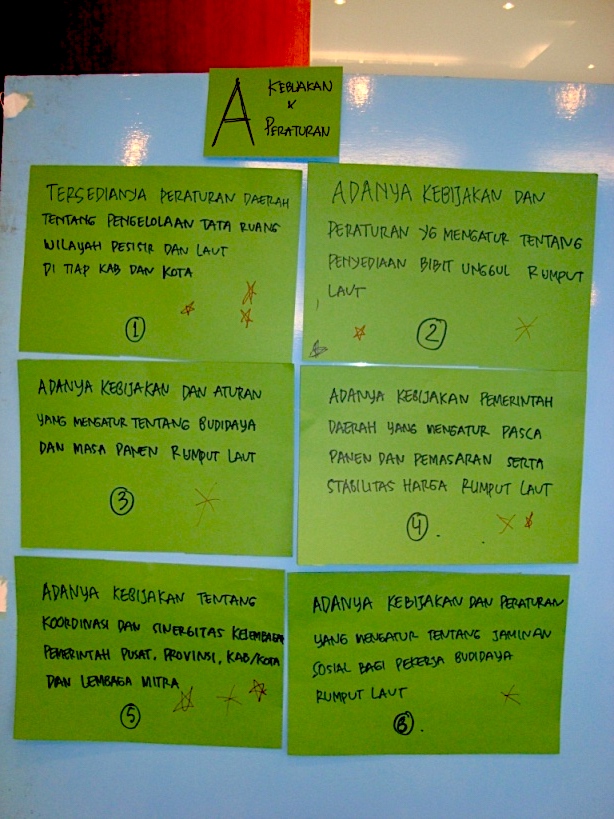 A
KEBIJAKAN
&
PERATURAN
TERSEDIANYA PERATURAN DAERAH
TENTANG PENGELOLAAN TATA RUANG
WILAYAH PESISIR DAN LAUT
DI TIAP KAB DAN KOTA
1
ADANYA KEBIJAKAN DAN
PERATURAN YG MENGATUR TENTANG
PENYEDIAAN BIBIT UNGGUL RUMPUT
LAUT
2
ADANYA KEBIJAKAN DAN ATURAN
YANG MENGATUR TENTANG BUDIDAYA
DAN MASA PANEN RUMPUT LAUT
3
ADANYA KEBIJAKAN PEMERINTAH
DAERAH YANG MENGATUR PASCA
PANEN DAN PEMASARAN SERTA
STABILITAS HARGA RUMPUT LAUT
4
ADANYA KEBIJAKAN TENTANG
KOORDINASI DAN SINERGITAS KELEMBAGA
PEMERINTAH PUSAT, PROVINSI, KAB/KOTA
DAN LEMBAGA MITRA
5
ADANYA KEBIJAKAN DAN PERATURAN
YANG MENGATUR TENTANG JAMINAN
SOSIAL BAGI PEKERJA BUDIDAYA
RUMPUT LAUT